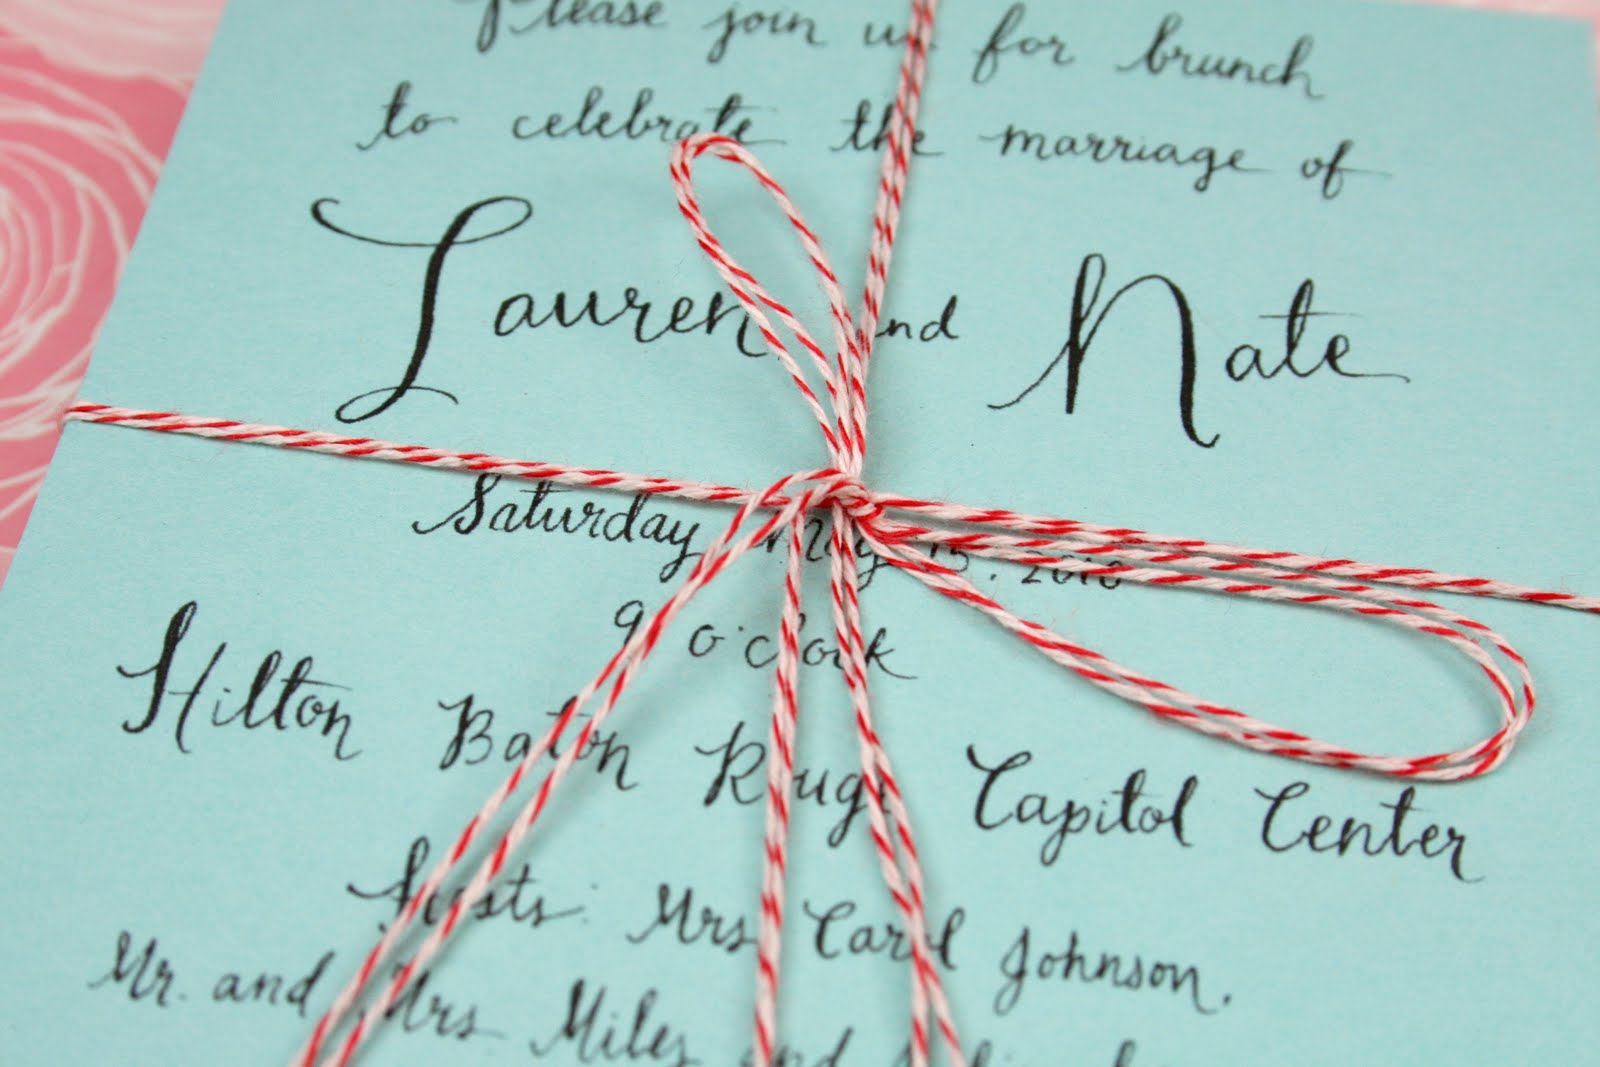 Please join us for brunch
to celebrate the marriage of
Lauren and Nate
Saturday May 15. 2010
9 o'clock
Hilton Baton Rouge Capitol Center
hosts: Mrs Carol Johnson,
Mr. and Mrs Miles and